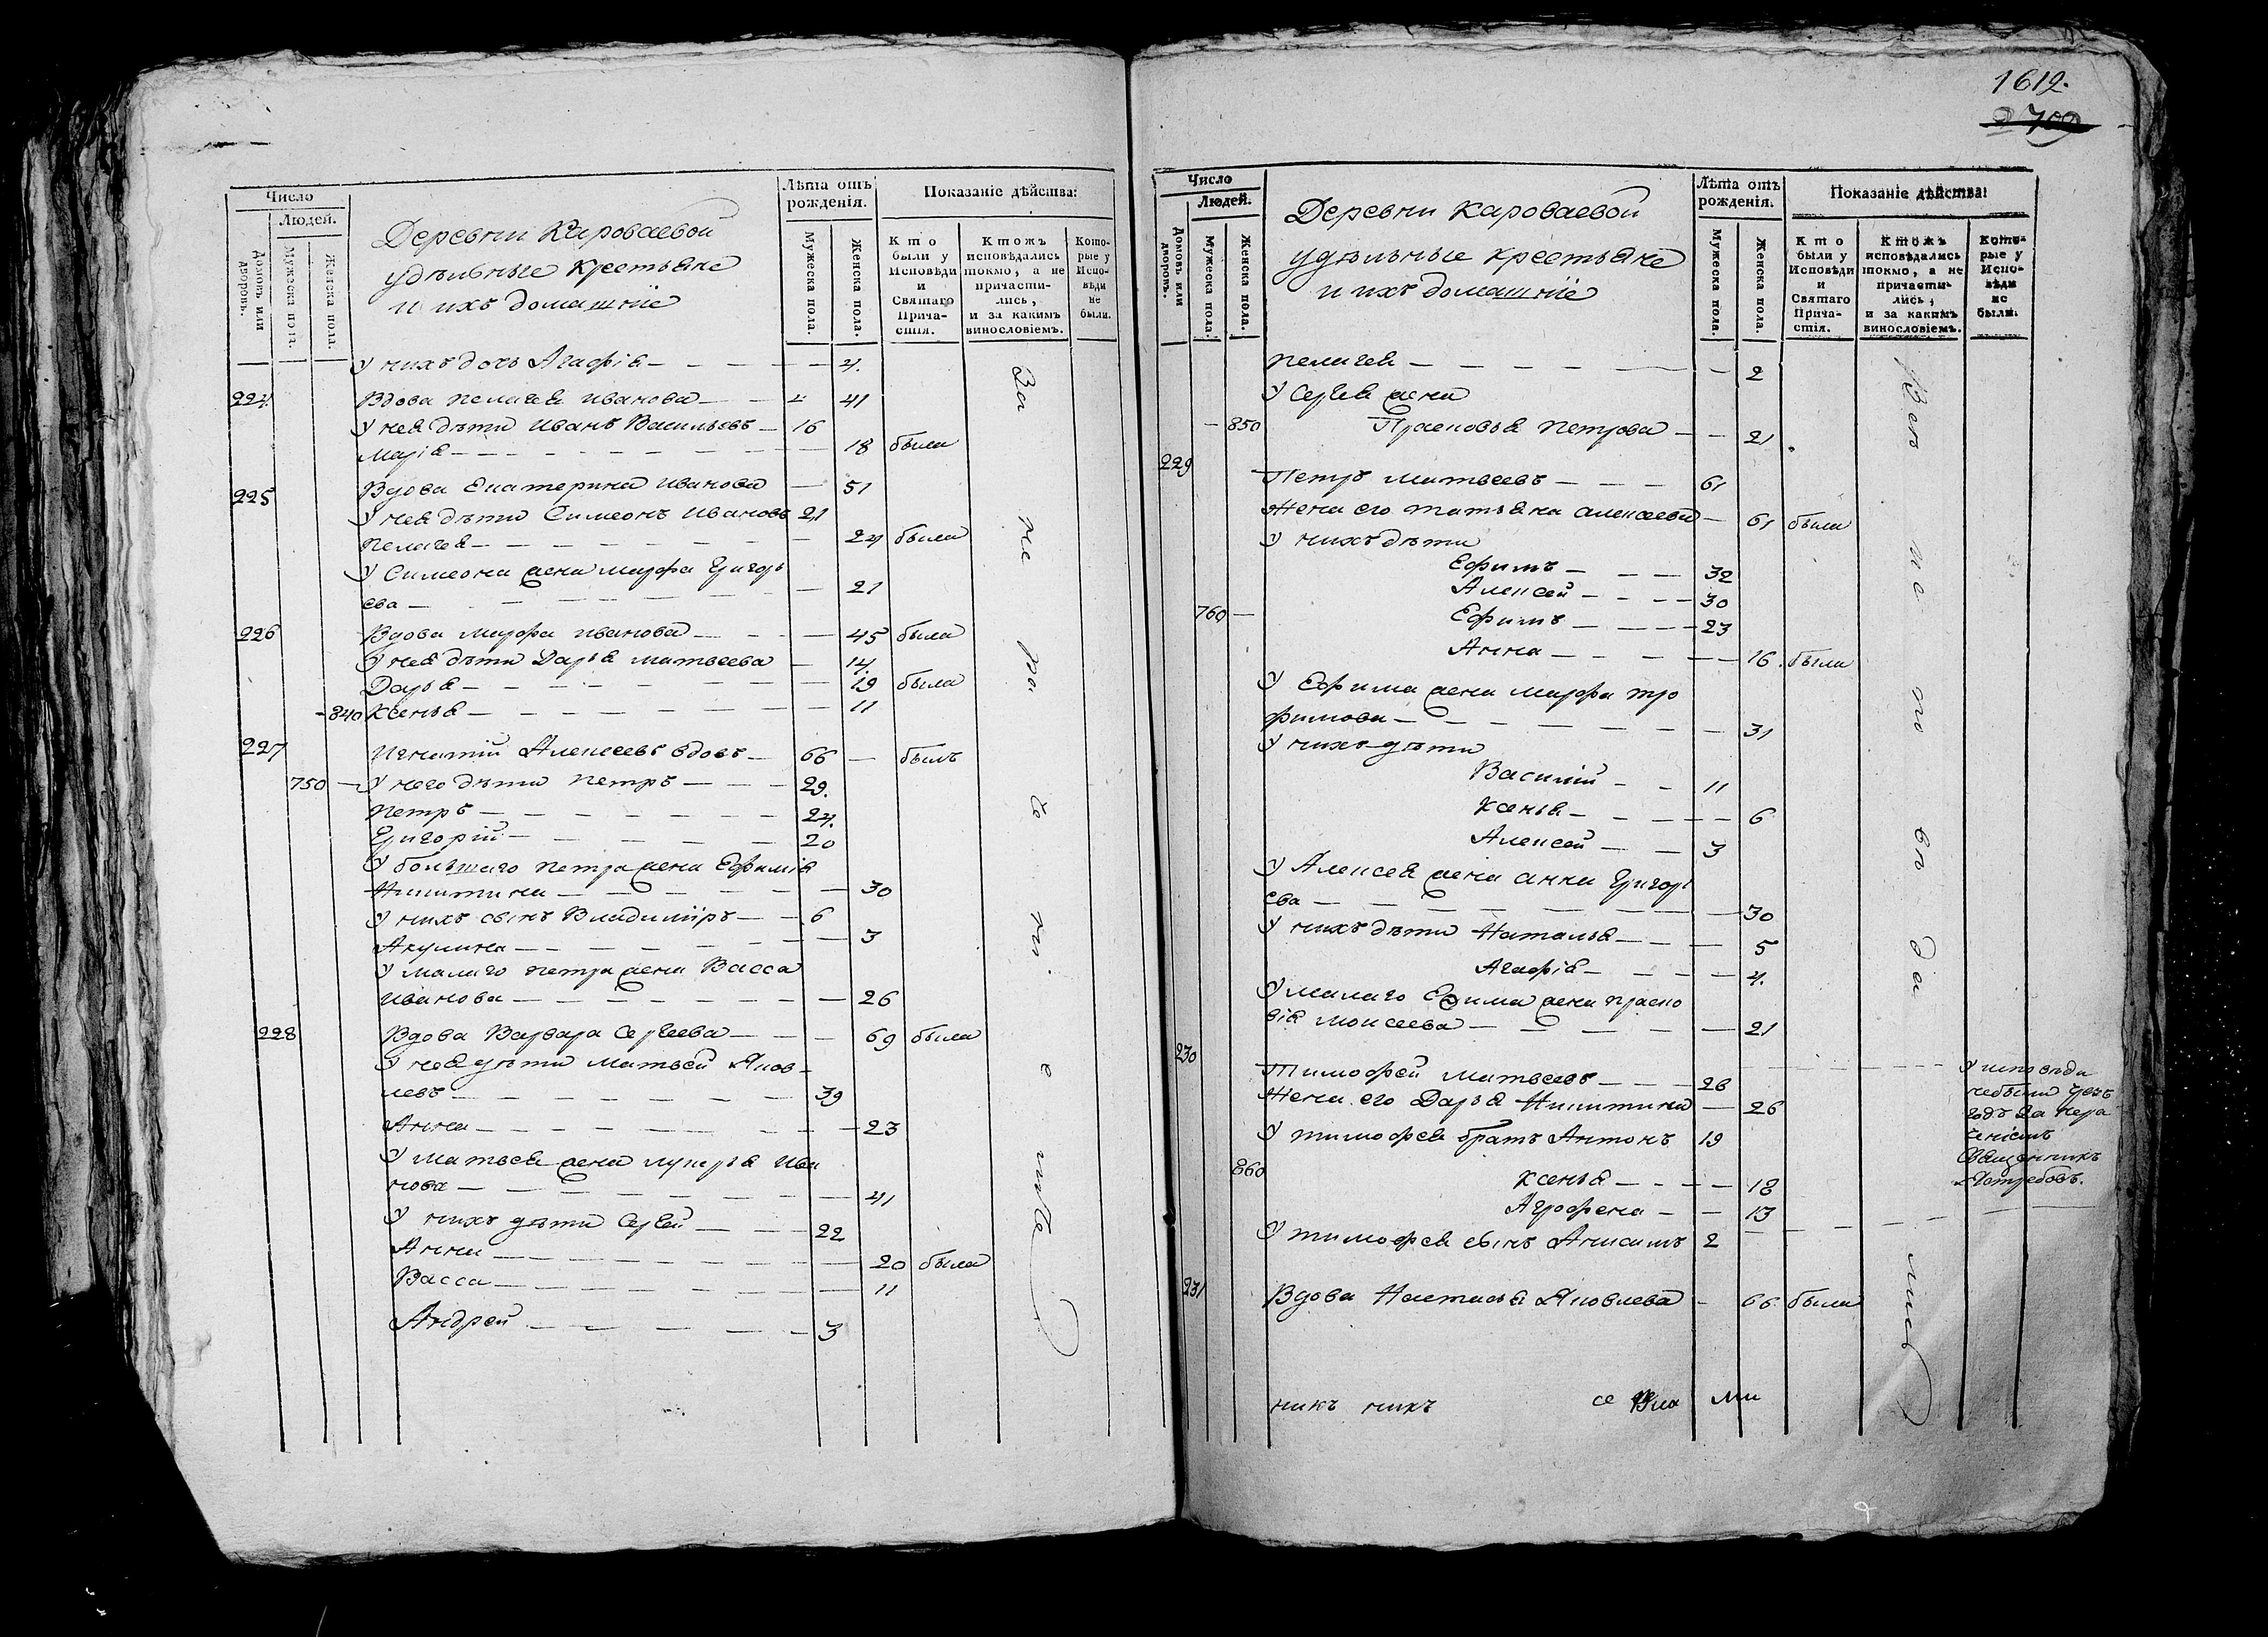 Число
Людей.
Домовъ или дворовъ.
Мужеска пола.
Женска пола.
Деревни Кароваевой
удѣльные крестьяне
и ихъ домашніе
Лѣта отъ рожденія.
Мужеска пола.
Женска пола.
Показаніе дѣйства:
Кто были у Исповѣди и Святаго Причастія.
Ктожъ исповѣдались токмо, а не причастились, и за какимъ винословіемъ.
Которые у Исповѣди не были.
У нихъ дочь Агафія — — — — 4.
224 Вдова Пелагея Иванова — 41
У нея дѣти Иванъ Васильевъ — 16
Марія — — — — 18 была
225 Вдова Екатерина Иванова — 51
У нея дѣти Симеонъ Ивановъ 21
Пелагея — — — — 24 была
У Симеона жена Марфа Григорь
ева — — — — 21
226 Вдова Марфа Иванова — — 45 была
У нея дѣти Дарья Матвеева — 14.
Дарья — — — — 19 была
840 Ксенья — — — — 11
227 Игнатій Алексеевъ вдовъ — 66 — былъ
750 — У него дѣти Петръ — — 29.
Петръ — — — — 24.
Григорій — — — — 20
У большаго Петра жена Ефимія
Никитина — — — — 30
У нихъ сынъ Владиміръ — — 6
Акулина — — — — 3
У малаго Петра жена Васса
Иванова — — — — 26
228 Вдова Варвара Сергеева — — 69 была
У нея дѣти Матвей Яков-
левъ — — — — 39
Анна — — — — 23
У Матвея жена Лукерья Ива
нова — — — — 41
У нихъ дѣти Сергей — — 22
Анна — — — — 20 была
Васса — — — — 11
Андрей — — — — 3
За не ра че ні е мъ
1612.
2709
Число
Людей.
Домовъ или дворовъ.
Мужеска пола.
Женска пола.
Деревни Кароваевой
удѣльные крестьяне
и ихъ домашніе
Лѣта отъ рожденія.
Мужеска пола.
Женска пола.
Показаніе дѣйства:
Кто были у Исповѣди и Святаго Причастія.
Ктожъ исповѣдались токмо, а не причастились, и за какимъ винословіемъ.
Которые у Исповѣди не были.
Пелагея — — — — 2
У Сергея жена
850 Прасковья Петрова — — 21
229 Петръ Матвеевъ — — — 61
Жена его Татьяна Алексеева — 61 была
У нихъ дѣти
Ефимъ — — — 32
Алексей — — — 30
760 — Ефимъ — — — 23
Анна — — — 16 была
У Ефима жена Марфа Тро
фимова — — — — 31
У нихъ дѣти
Василій — — 11
Ксенья — — — 6
Алексей — — 3
У Алексея жена Анна Григорь
ева — — — — 30
У нихъ дѣти Наталья — — — 5
Агафія — — — 4.
У малаго Ефима жена Праско
вія Моисеева — — — — 21
230 Тимофей Матвеевъ — — — 26
Жена его Дарья Никитина — 26
У Тимофея братъ Антонъ 19
860 Ксенья — — — 18
Агрофена — — 13
У Тимофея сынъ Анисимъ 2
231 Вдова Настасья Яковлева — 66 была
У исповѣди
небыли
годъ за нера
ченіемъ
Священникъ
не по вѣ да лись
никъ нихъ се ми